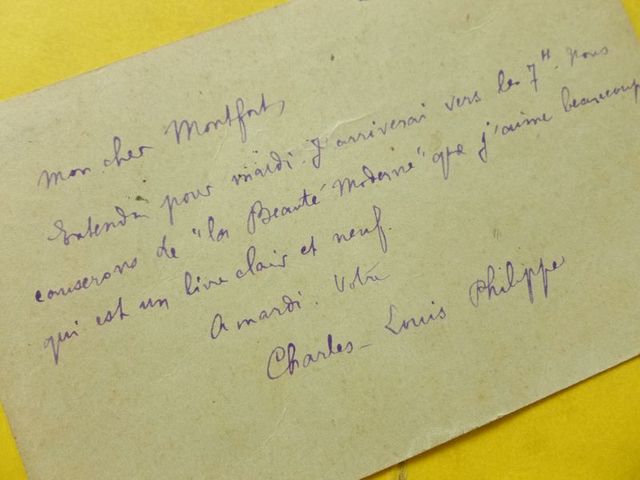 Mon cher Montfort,
Entendu pour mardi. J'arriverai vers les 7h. Nous
causerons de "la Beauté Moderne" que j'aime beaucoup
qui est un livre clair et neuf.
A mardi. Votre
Charles-Louis Philippe